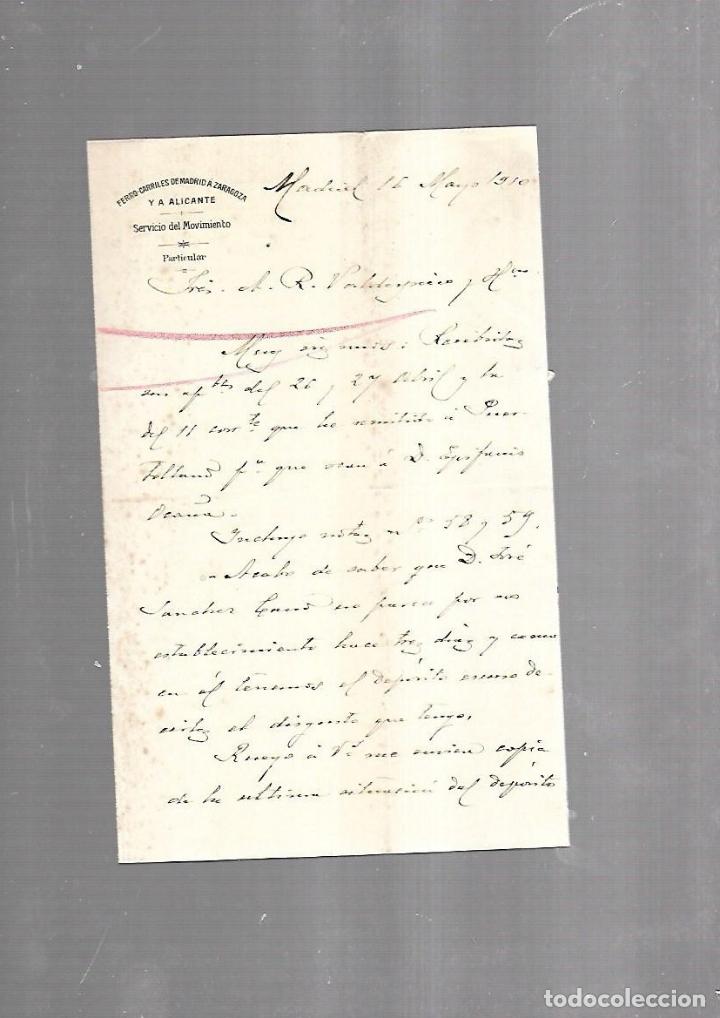 FERRO-CARRILES DE MADRID A ZARAGOZA
Y A ALICANTE
Servicio del Movimiento
Particular
Madrid 16 Mayo 1910
Sres. A. R. Valdespino y Hno.
Muy Sres mios: Recibidas
sus aptas del 26 y 27 Abril y la
del 11 corrte que he remitido á Puer-
tollano pa que vean á D. Epifanio
Ocaña.
Incluyo notas nos 58 y 59.
Acabo de saber que D. José
Sanchez Cano no parece por su
establecimiento hace tres dias y como
en él tenemos el depósito escuso de-
cirles el disgusto que tengo.
Ruego á Vs me envien copia
de la ultima situación del depósito
todocoleccion
todocoleccion.net